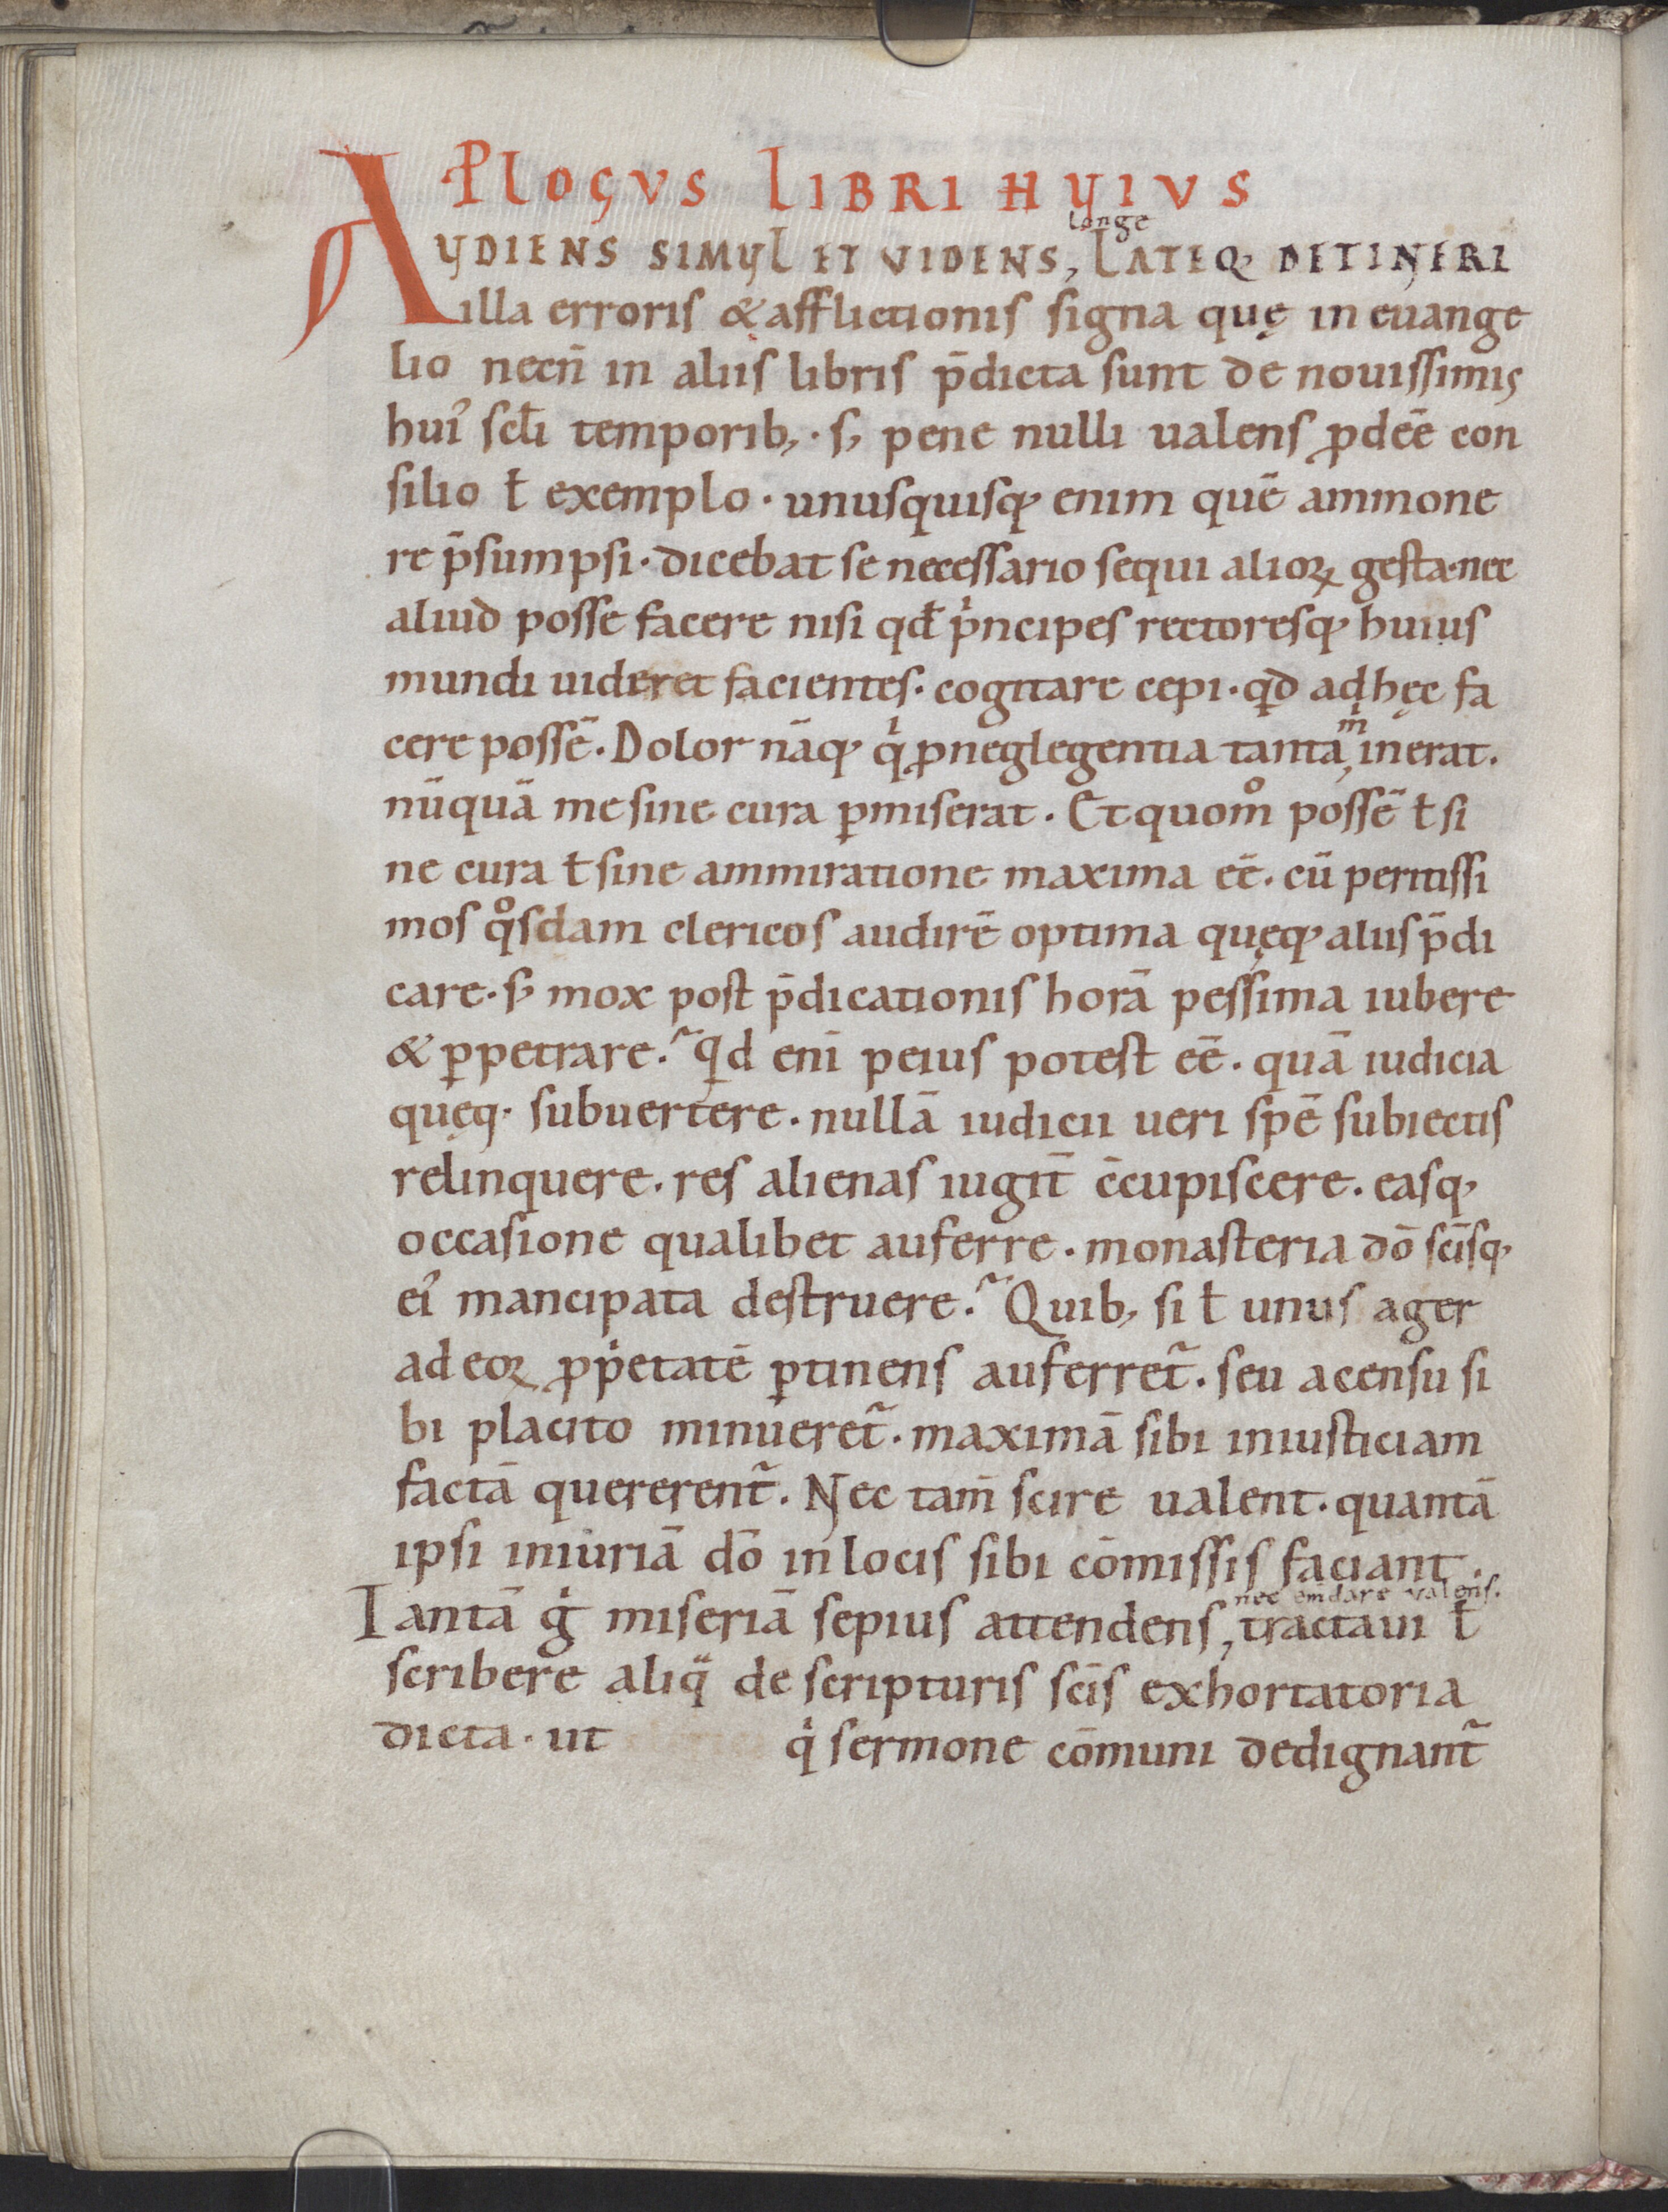 PLOGVS LIBRI HVIVS
longe
AVDIENS SIMVL ET VIDENS, LATEQ· DETINERI
illa erroris & afflictionis signa quę in euange
lio necn̄ in aliis libris p̄dicta sunt de nouissimis
hui᾽ scl̄i temporib; · s; pene nulli ualens ꝓdeē con
silio ł exemplo · unusquisq; enim quē ammone
re p̄sumpsi · dicebat se necessario sequi alioꝝ gesta · nec
aliud posse facere nisi qđ pⁱncipes rectoresq; huius
mundi uideret facientes · cogitare cepi · qⁱd ad hęc fa
m̍
cere possē · Dolor nāq; qⁱ ꝓ neglegentia tanta, inerat ·
nūquā me sine cura ꝑmiserat · Et quom̊ possē ł si
ne cura ł sine ammiratione maxima eē · cū peritissi
mos qͦsdam clericos audirē optima quęq; aliis p̄di
care · s; mox post p̄dicationis horā pessima iubere
& ꝑpetrare .᷉ qⁱd eni̅ peius potest eē · quā iudicia
quęq; subuertere · nullā iudicii ueri spē subiectis
relinquere · res alienas iugit̄ c̄cupiscere · easq;
occasione qualibet auferre · monasteria dō scīsq;
ei᾽ mancipata destruere .᷉ Quib; si ł unus ager
ad eoꝝ ꝓpⁱetatē ꝑtinens auferret᷑ · seu a censu si
bi placito minueret᷑ · maximā sibi iniusticiam
factā quererent᷑ · Nec tam̄ scire ualent · quantā
ipsi iniuriā dō in locis sibi cōmissis faciant ·
nec em̄dare valens·
Tantā gⁱ miseriā sepius attendens, tractaui ł
scribere aliqͣ de scripturis scīs exhortatoria
dicta · ut qⁱ sermone cōmuni dedignant᷑